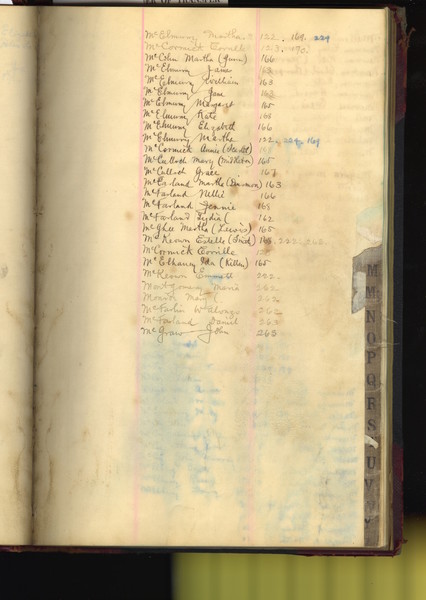 McElmurry Martha 122, 169, 229
McCormick Orville 123, 170
McCohn Martha (Gunn) 166
McElmurry James 163
McElmurry William 163
McElmurry Jane 163
McElmurry Margaret 165
McElmurry Kate 164
McElmurry Elizabeth 166
McElmurry Martha 122, 229, 169
McCormick Annie
McCulloch Mary (Middleton) 165
McCulloch Grace 167
McFarland Martha (Dinsmon) 163
McFarland Nellie 166
McFarland Jennie 169
McFarland Lydia ( 162
McGhee Martha (Lewis) 165
McKeown Estelle 168, 222
McCormick Orville
McElhaney Ida (Killen) 165
McKeown Emmett 222
Montgomery Marie 262
Mary 262
McFarlin Wm Alonzo 262
McFarland Daniel 263
McGraw John 263
M
M
N
O
P
Q
R
S
U
V